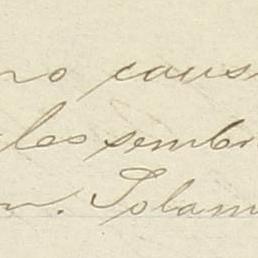 no caus
les sembr
n. Solam